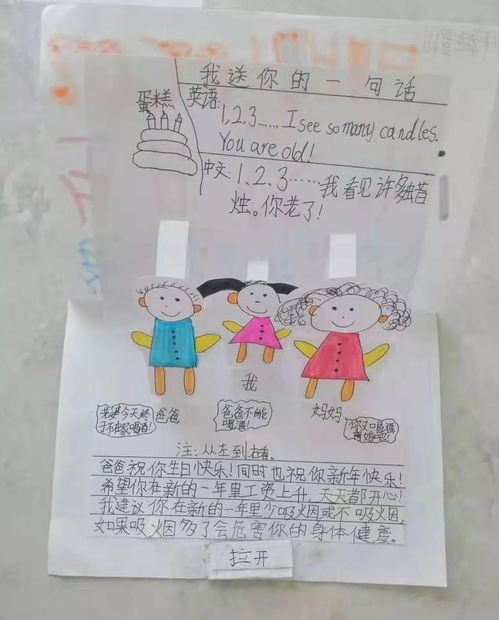 我送你的一句话
蛋糕
英语:
1,2,3......I see so many candles.
You are old!
中文:1、2、3······我看见许多蜡
烛。你老了!
我
爸爸
妈妈
爸爸不能
喝酒!
你又喝酒
注:从左到右。
爸爸祝你生日快乐!同时也祝你新年快乐!
希望你在新的一年里工资上升,天天都开心!
我建议你在新的一年里少吸烟或不吸烟,
如果吸烟多了会危害你的身体健康。
拉开